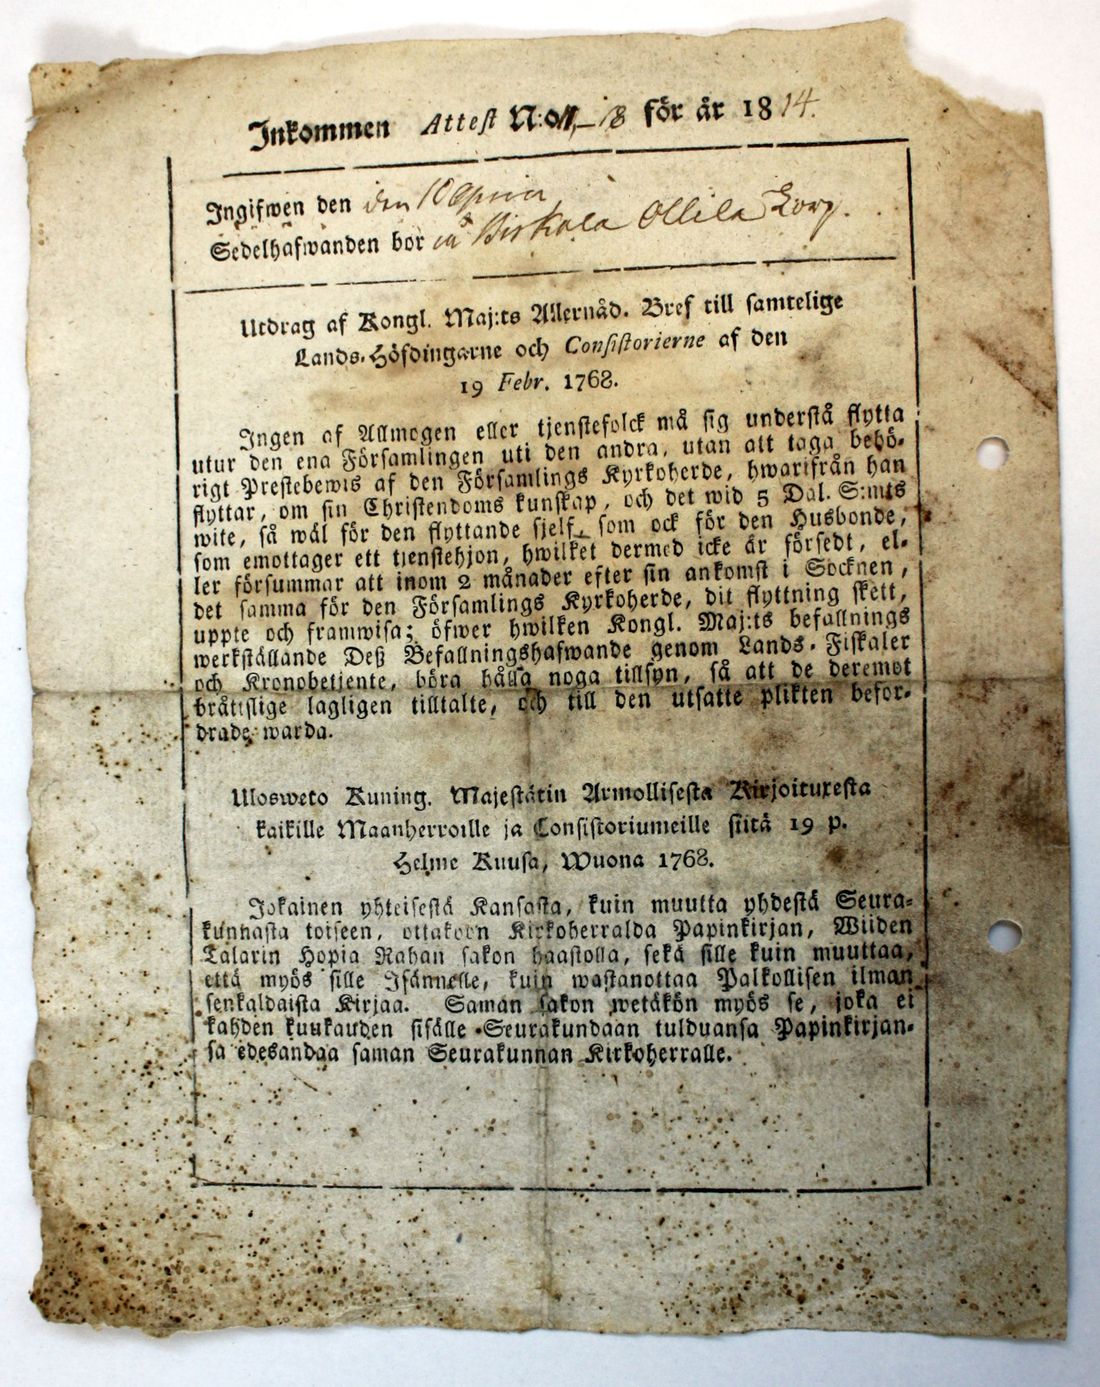 Inkommen Attest N:o 18 för år 1814.
Ingifwen den den 10 April
Sedelhafwanden bor på Ollila Torp.
Utdrag af Kongl. Maj:ts Allernåd. Bref till samtelige
Lands-Höfdingarne och Consistorierne af den
19 Febr. 1768.
Ingen af Allmogen eller tjenstefolck må sig understå flytta
utur den ena Församlingen uti den andra, utan att taga behö-
rigt Prestebewis af den Församlings Kyrkoherde, hwarifrån han
flyttar, om sin Christendoms kunskap, och det wid 5 Dal. S:mts
wite, så wäl för den flyttande sjelf, som ock för den Husbonde,
som emottager ett tjenstehjon, hwilket dermed icke är försedt, el-
ler försummar att inom 2 månader efter sin ankomst i Socknen,
det samma för den Församlings Kyrkoherde, dit flyttning skett,
uppte och framwisa; öfwer hwilken Kongl. Maj:ts befallnings
werkställande Deß Befallningshafwande genom Lands-Fiskaler
och Kronobetjente, böra hålla noga tillsyn, så att de deremot
bråtislige lagligen tilltalte, och till den utsatte plikten befor-
drade warda.
Ulosweto Kuning. Majestätin Armollisesta Kirjoituxesta
kaikille Maanherroille ja Consistoriumeille siitä 19 p.
Helme Kuusa, Wuona 1768.
Jokainen yhteisestä Kansasta, kuin muutta yhdestä Seura-
kunnasta toiseen, ottakoon Kirkoherralda Papinkirjan, Wiiden
Talarin Hopia Rahan sakon haastolla, sekä sille kuin muuttaa,
että myös sille Isännelle, kuin wastanottaa Palkollisen ilman
senkaldaista Kirjaa. Saman sakon wetäkön myös se, joka ei
kahden kuukauden sisälle Seurakundaan tulduansa Papinkirjan-
sa edesandaa saman Seurakunnan Kirkoherralle.